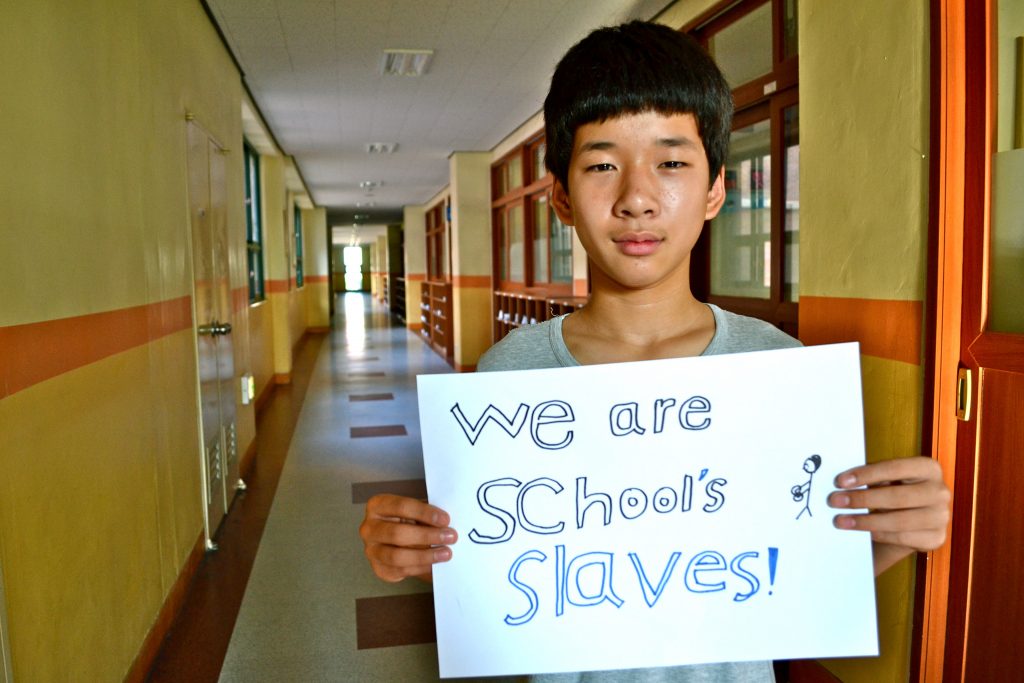 we are
SChool's
Slaves!